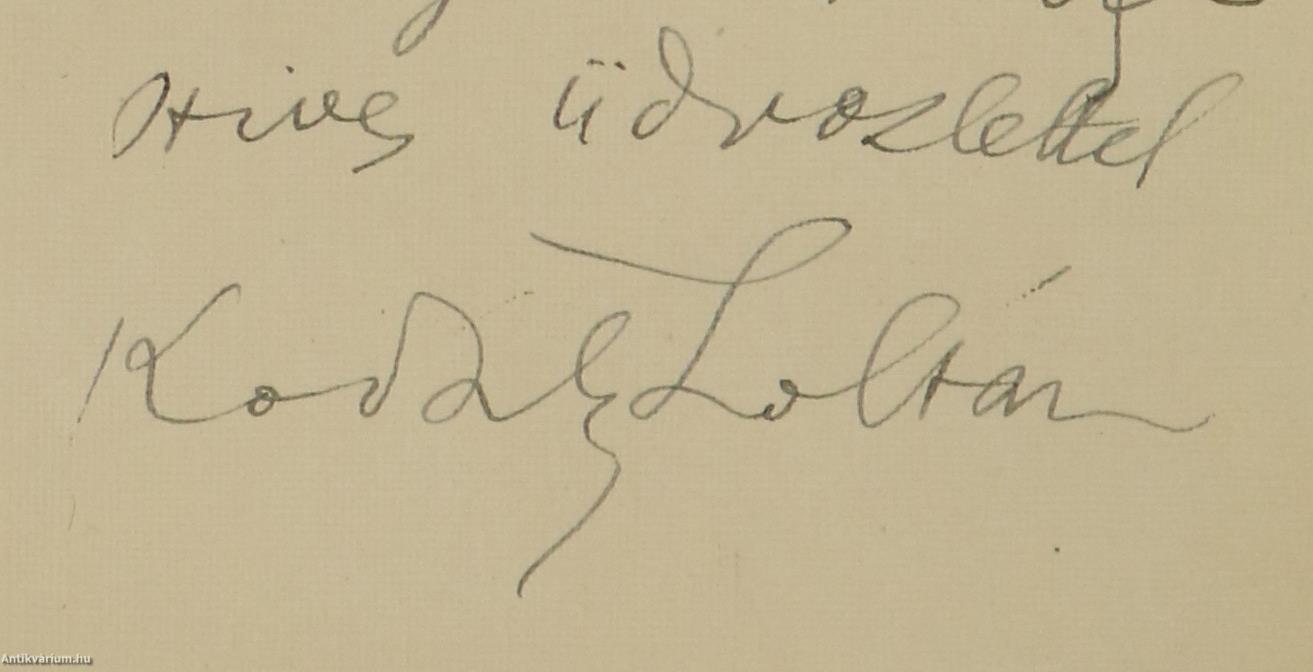 szives üdvozlettel
Kodály Zoltán
Antikvárium.hu